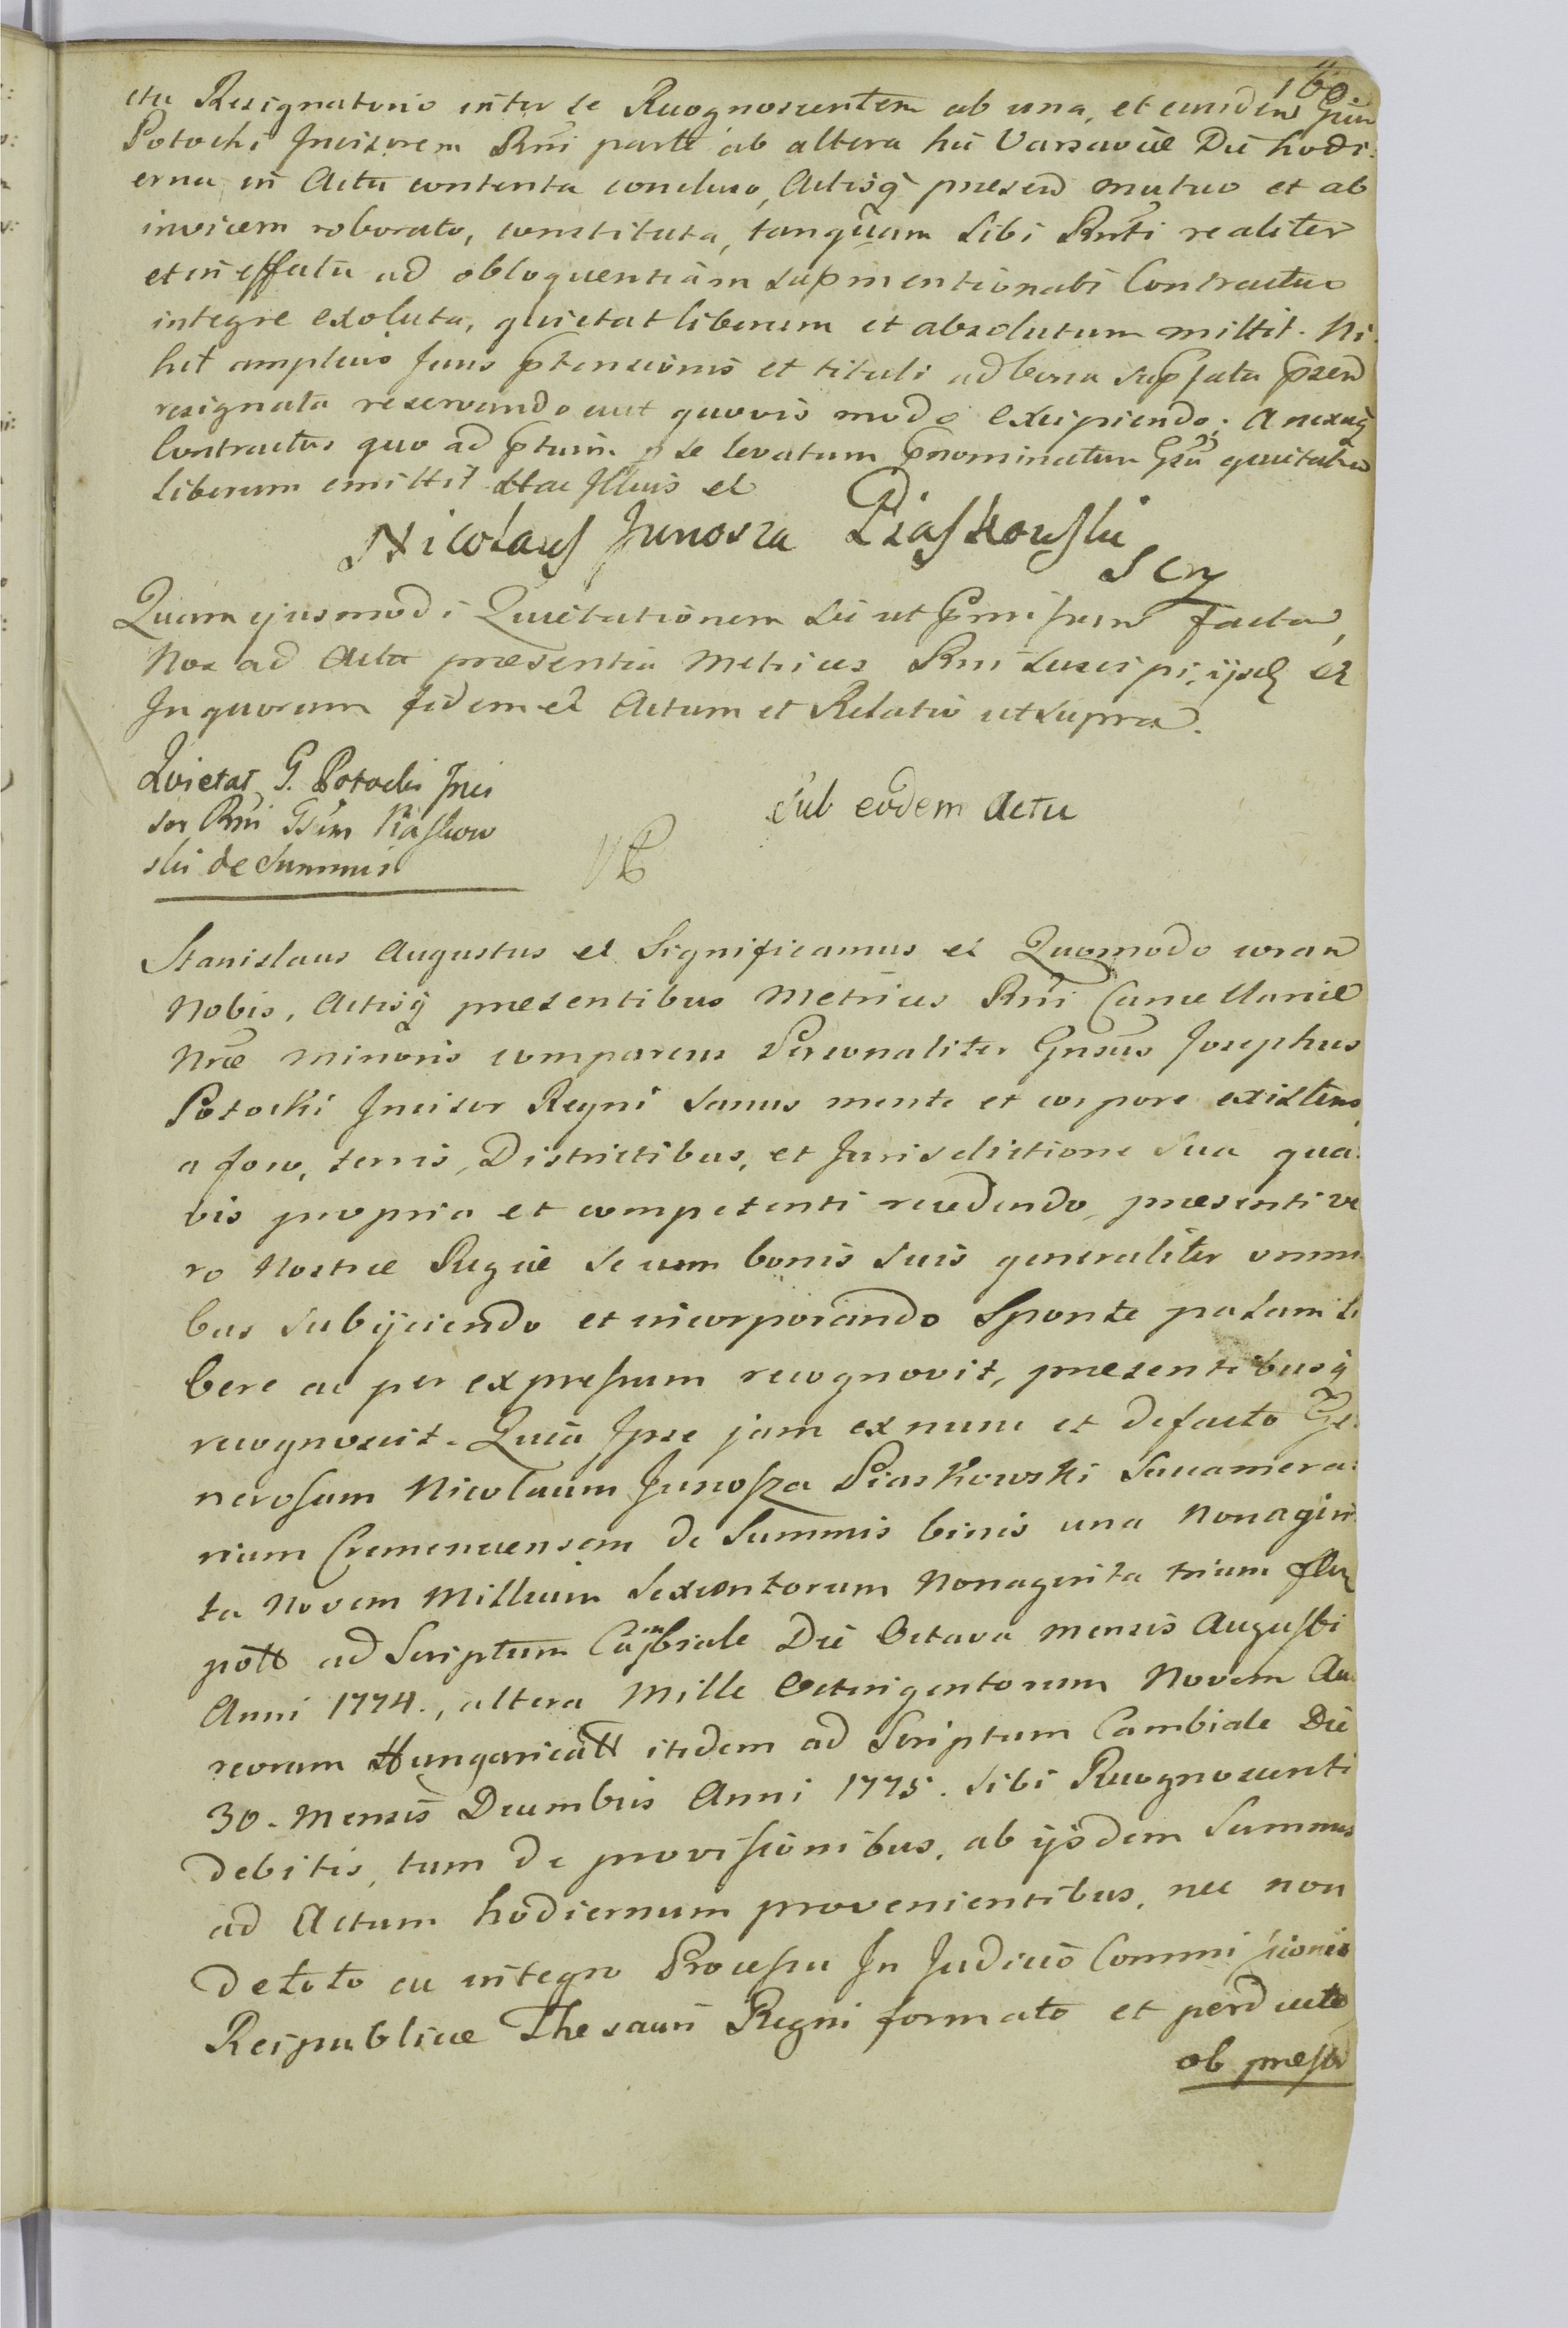 160
ctu Resignatorio inter se Recognoscentem ab una, et eundem Gsum
Potocki Incisorem Rni parte ab altera hic Varsaviæ Die hodi:
erna in Actu contenta concluso, Actisq̃ præsen mutuo et ab
invicem roborato, constituta, tanquam sibi Rnti realiter
et in effectu ad obloquentiam supmentionati Contractus
integre exoluta, quietat liberum et absolutum mittit. Ni:
hil amplius Juris ptensionis et tituli ad bona supfata psen
resignata reservando aut quovis modo excipiendo; Anexaq̃
Contractus quo ad ptum p se levatum pnominatum Gsu quietatu
liberum emittit Hac Illius et
Nicolaus Junosza Piaskowski
SCrz
Quam ejusmodi Quietationem sic ut pmissum facta,
Nos ad Acta præsentia Metrices Rni suscipi, ijsq̃ et
In quorum fidem et Actum et Relatio ut supra.
Quietat G. Potocki Inci
sor Rni Gsum Piaskow
ski de Summis
Sub eodem Actu
Stanislaus Augustus et Significamus et Quomodo coram
Nobis, Actisq̃ præsentibus Metrices Rni Cancellariæ
Nræ minoris comparens Personaliter Gnsus Josephus
Potocki Incisor Regni sanus mente et corpore existens
a foro, terris, Districtibus, et Jurisdictione sua qua:
vis propria et competenti recedendo, præsenti ve
ro Nostræ Regiæ se cum bonis suis generaliter omni
bus subijciendo et incorporando Sponte palam li
bere ac per expressum recognovit, præsentibusq̃
recognoscit. Quia Ipse jam ex nunc et defacto Ge:
nerosum Nicolaum Junosza Piaskowski Succamera:
rium Cremenecensem de Summis binis una Nonagin:
ta Novem Millium Sexcentorum Nonaginta trium flor
poll ad Scriptum Cambiale Die Octava mensis Augusti
Anni 1774., altera Mille Octingentorum Novem Au
reorum Hungaricall itidem ad Scriptum Cambiale Die
30. Mensis Decembris Anni 1775. sibi Recognoscenti
debitis, tum de provisionibus, ab ijsdem Summis
ad Actum hodiernum provenientibus, nec non
de toto cu integro Processu In Judicio Commissionis
Reipublicæ Thesauri Regni formato et perducto
ob præsta